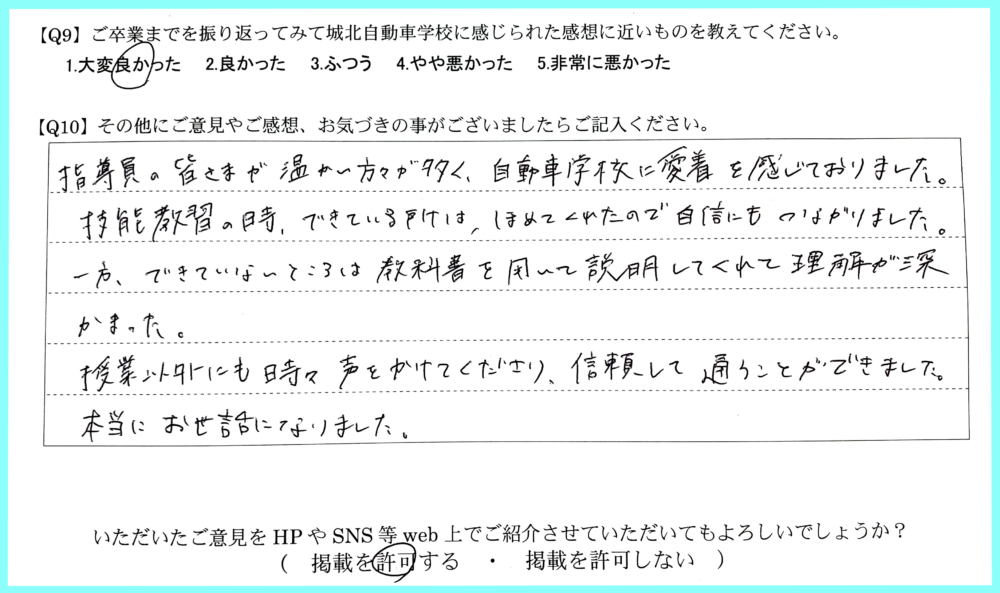 【Q9】ご卒業までを振り返ってみて城北自動車学校に感じられた感想に近いものを教えてください。
1.大変良かった 2.良かった 3.ふつう 4.やや悪かった 5.非常に悪かった
【Q10】その他にご意見やご感想、お気づきの事がございましたらご記入ください。
指導員の皆さまが温かい方々が多く、自動車学校に愛着を感じておりました。
技能教習の時、できている所は、ほめてくれたので自信にもつながりました。
一方、できていないところは教科書を用いて説明してくれて理解が深
かまった。
授業以外にも時々声をかけてくださり、信頼して通うことができました。
本当にお世話になりました。
いただいたご意見をHPやSNS等web上でご紹介させていただいてもよろしいでしょうか？
( 掲載を許可する ・ 掲載を許可しない )